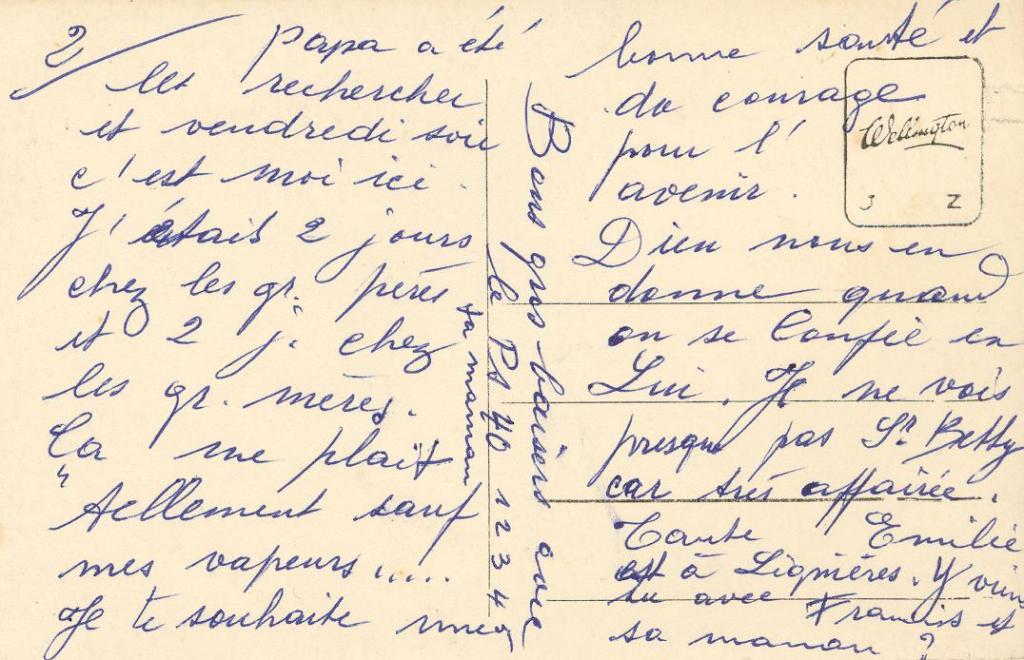 2/
Papa a été
les rechercher
et vendredi soir
c'est moi ici.
J'étais 2 jours
chez les gr. pères
et 2 j. chez
les gr. mères.
Ça me plaît
tellement sauf
mes vapeurs.....
Je te souhaite une
bonne santé et
du courage
pour l'
avenir.
Dieu nous en
donne quand
on se confie en
Lui. Je ne vois
presque pas Sr Betty
car très affairée.
Tante Emilie
est à Lignières. Y vien
tu avec Francis et
sa maman ?
Bons gros baisers avec
le PS 40 1 2 3 4
ta maman
Wellington
J Z